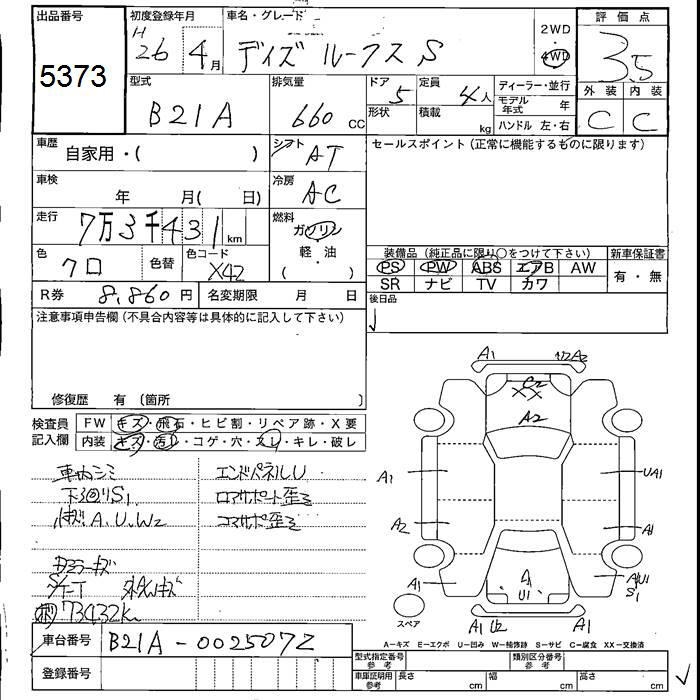 出品番号
5373
初度登録年月
H
26 4月
車名・グレード
デイズ ルークス S
2WD
4WD
評価点
3.5
外装 内装
C C
型式
B21A
排気量
660 cc
ドア
5
形状
定員
4人
積載
kg
ディーラー・並行
モデル年式 年
ハンドル 左・右
車歴
自家用・( )
シフト
AT
セールスポイント(正常に機能するものに限ります)
車検
年 月( 日)
冷房
AC
走行
7万3千431 km
燃料
ガソリン
軽・油
( )
色
クロ
色替
色コード
X42
装備品(純正品に限り○をつけて下さい)
新車保証書
PS PW ABS エアB AW
有・無
SR ナビ TV カワ
R券 8,860円
名変期限 月 日
後日品
注意事項申告欄(不具合内容等は具体的に記入して下さい)
修復歴 有 (箇所 )
検査員
記入欄
FW キズ・飛石・ヒビ割・リペア跡・X要
内装 キズ・汚れ・コゲ・穴・スレ・キレ・破レ
車内シミ
下廻りS1
エンドパネルU
ロアサポート歪ミ
コアサポ歪ミ
73432k
A1
C2
XX
A2
A1
UA1
A2
A1
A1
A1U1
S1
A1
U1
A1 U2
A1
スペア
A-キズ E-エクボ U-凹み W-補修跡 S-サビ C-腐食 XX-交換済
車台番号
B21A-0025072
登録番号
型式指定番号
参考
類別区分番号
参考
車庫証明用
参考
長さ cm
幅 cm
高さ cm